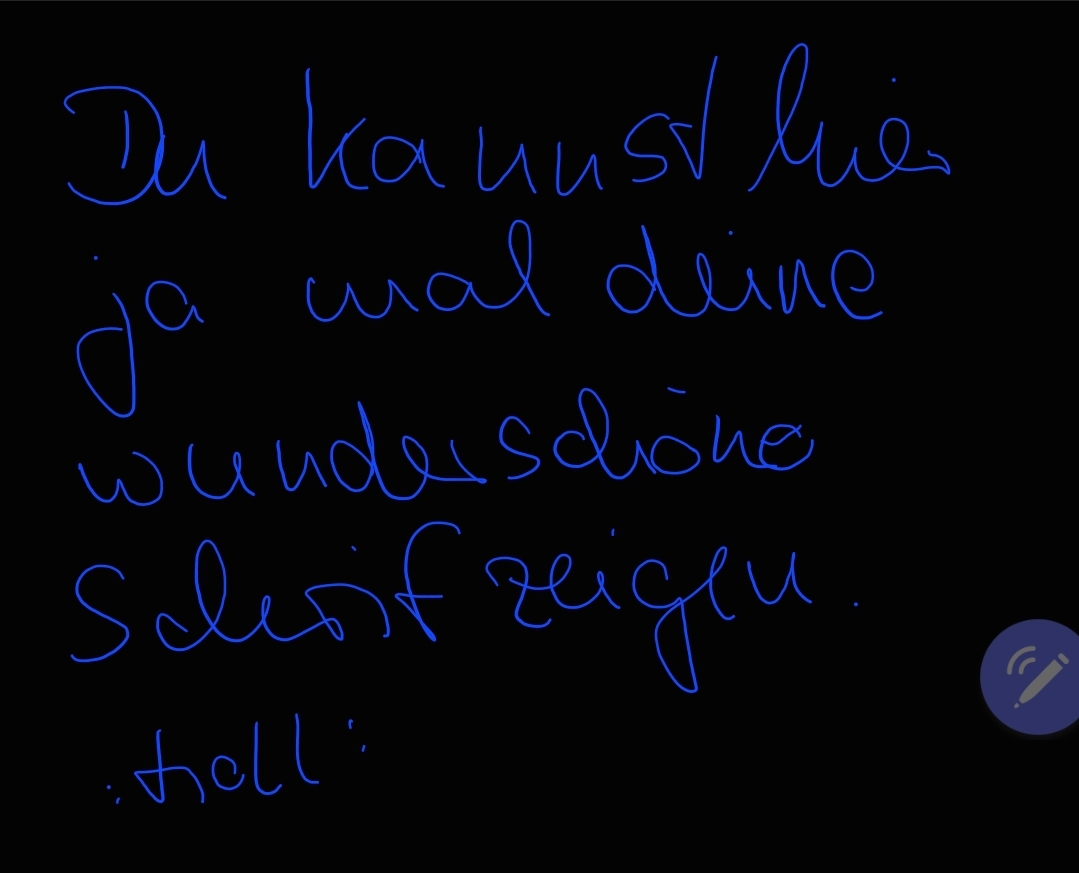 Du kannst hier
ja mal deine
wunderschöne
Schrift zeigen.
:troll: